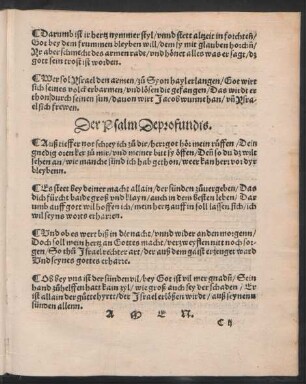 ¶Darumb ist ir hertz nymmer styl / vnnd stett altzeit in forchten /
Got bey dem frummen bleyben will / dem sy mit glauben horchen /
Ir aber schmecht des armen radt / vnd hönet alles was er sagt / dz
gott sein trost ist worden.
¶Wer sol Israel den armen / zu Syon hayl erlangen / Got wirt
sich seines volcks erbarmen / vnd lösen die gefangen / Das wirdt er
thon durch seinen sun / dauon wirt Jacob wunn han / vñ Isra-
el sich frewen.
Der Psalm Deprofundis.
¶Auß tieffer not schrey ich zu dir / herr got hör mein rüffen / Dein
gnedig oren ker zu mir / vnd meiner bit sy öffen / Den so du dz wilt
sehen an / wie manche sünd ich hab gethon / wer kan herr vor dyr
bleybenn.
¶Es steet bey deiner macht allain / der sünden zuuergeben / Das
dich fürcht baide groß vnd klayn / auch in dem besten leben / Dar
umb auff gott wil hoffen ich / mein hertz auff in soll lassen sich / ich
wil seyns worts erharren.
¶Vnd ob es wert biß in die nacht / vnnd wider an den morgenn /
Doch soll mein hertz an Gottes macht / verzweyflen nit noch sor-
gen / So thu Israel rechter art / der auß dem gaist erzeuget ward
Vnd seynes gottes erharre.
¶Ob bey vns ist der sünden vil / bey Got ist vil mer gnaden / Sein
hand zu helffen hatt kain zyl / wie groß auch sey der schaden / Er
ist allain der güttehyrtt / der Israel erlößen wirdt / auß seynenn
sünden allenn.
A M E N.
C ij